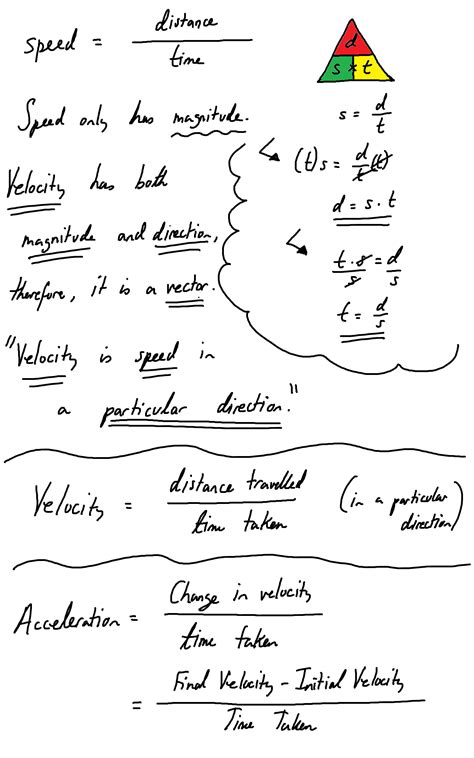 speed = distance / time
d
s × t
Speed only has magnitude.
Velocity has both
magnitude and direction,
therefore, it is a vector.
"Velocity is speed in
a particular direction."
s = d/t
(t)s = d/t (t)
d = s · t
t · s / s = d/s
t = d/s
Velocity = distance travelled / time taken (in a particular direction)
Acceleration = Change in velocity / time taken
= Final Velocity - Initial Velocity / Time Taken